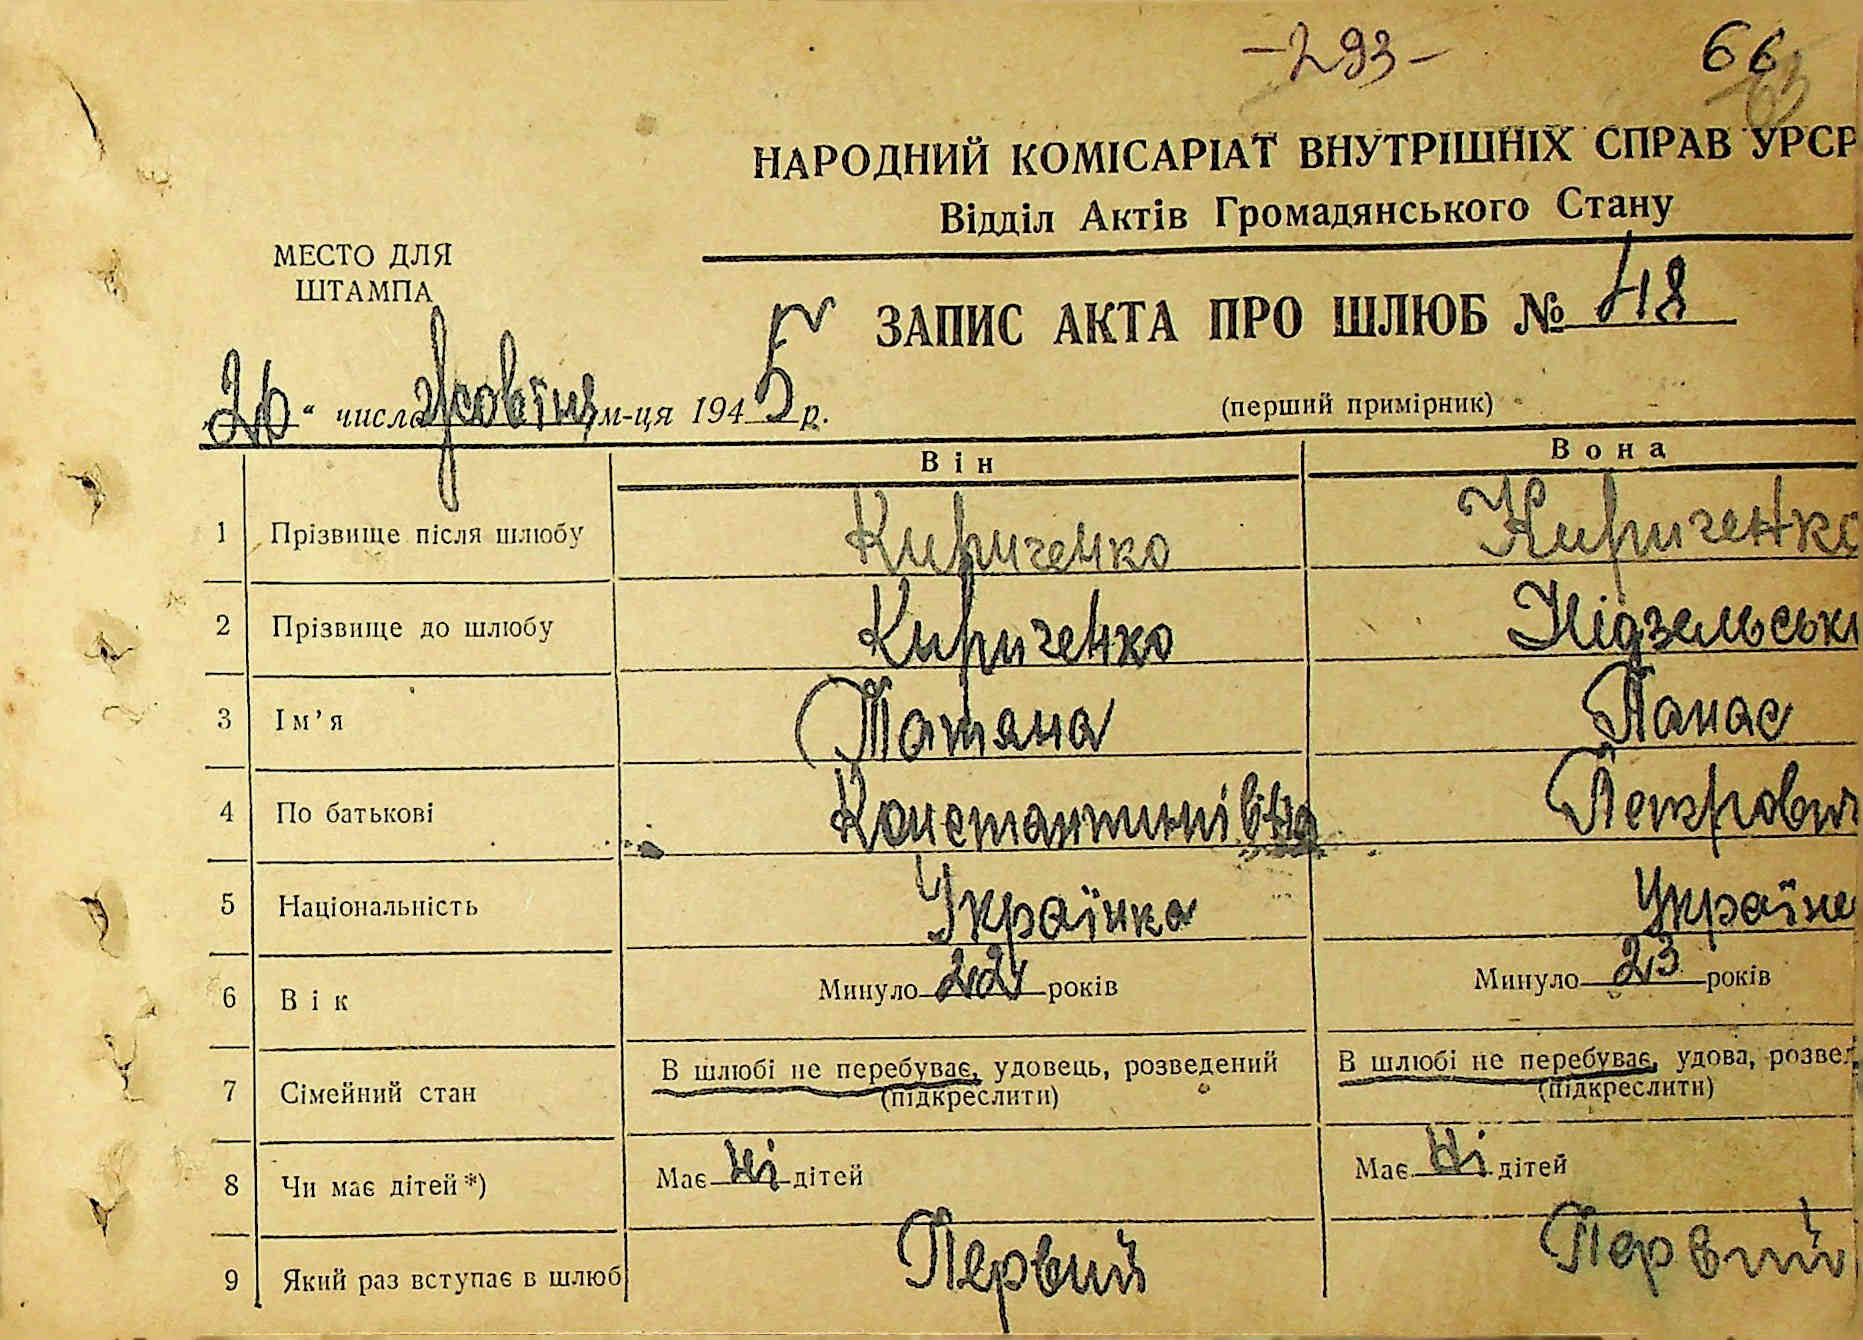 -293-
66
НАРОДНИЙ КОМІСАРІАТ ВНУТРІШНІХ СПРАВ УРСР
Відділ Актів Громадянського Стану
МЕСТО ДЛЯ
ШТАМПА
ЗАПИС АКТА ПРО ШЛЮБ № 48
„26“ числа жовтня м-ця 1945 р.
(перший примірник)
Він Вона
1 Прізвище після шлюбу Кириченко Кириченко
2 Прізвище до шлюбу Кириченко
3 Ім'я Татяна Панас
4 По батькові Константинівна Петрович
5 Національність Українка Україне
6 Вік Минуло 22 років Минуло 23 років
7 Сімейний стан В шлюбі не перебуває, удовець, розведений В шлюбі не перебуває, удова, розвед
(підкреслити) (підкреслити)
8 Чи має дітей*) Має ні дітей Має ні дітей
9 Який раз вступає в шлюб Первий Первий